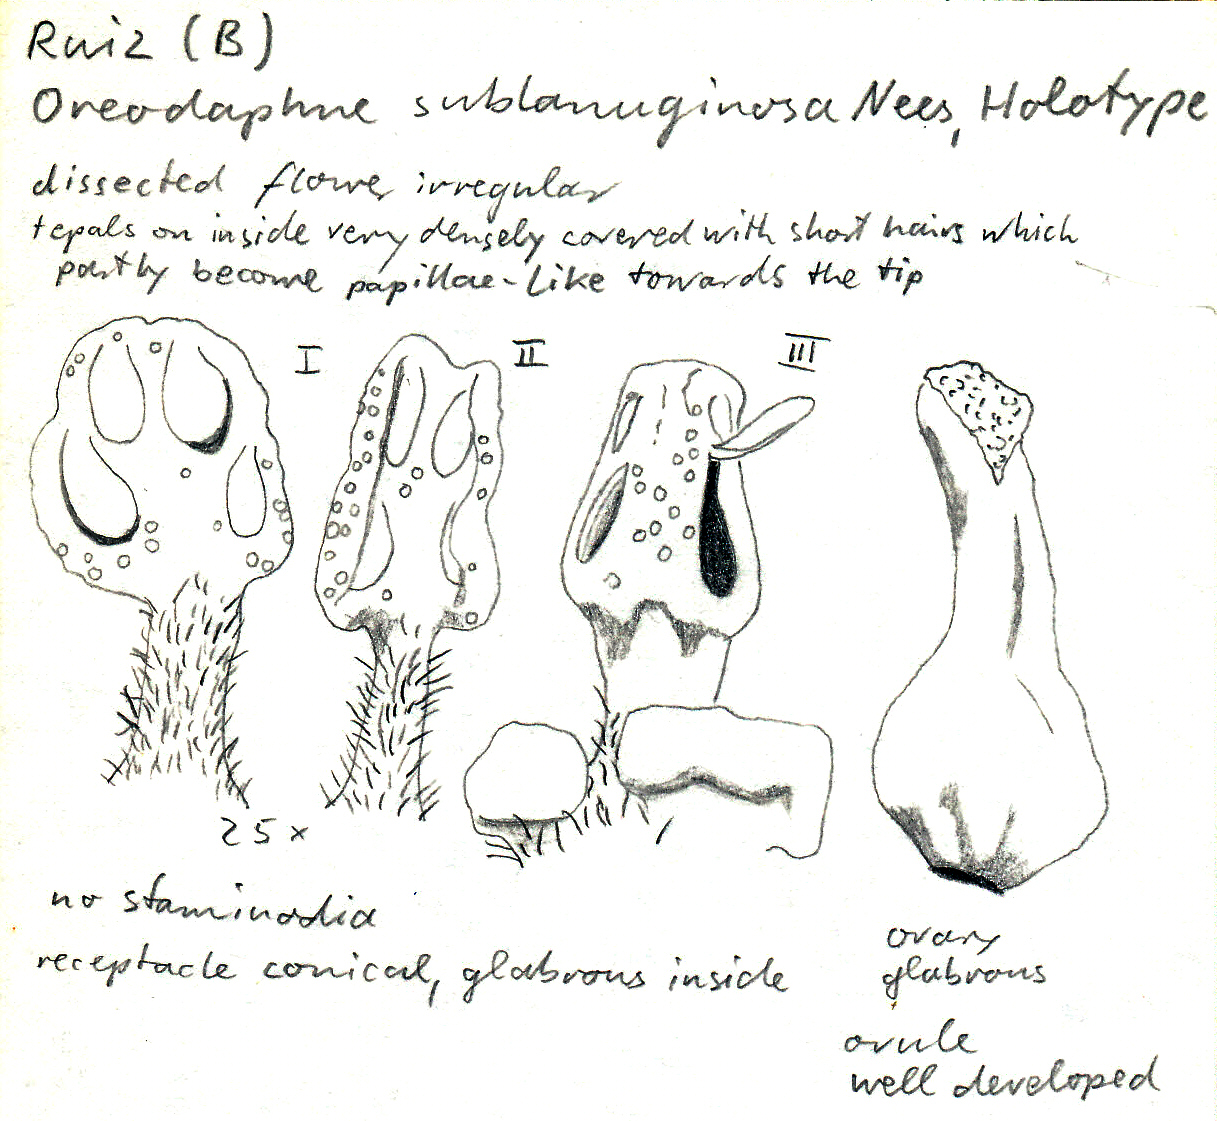 Ruiz (B)
Oreodaphne sublanuginosa Nees, Holotype
dissected flower irregular
tepals on inside very densely covered with short hairs which
partly become papillae-like towards the tip
I II III
25 x
no staminodia
receptacle conical, glabrous inside
ovary
glabrous
ovule
well developed